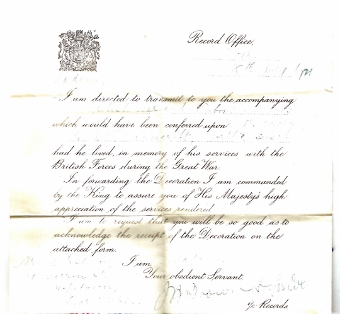 Record Office,
I am directed to transmit to you the accompanying
for
which would have been conferred upon
had he lived, in memory of his services with the
British Forces during the Great War.
In forwarding the Decoration I am commanded
by the King to assure you of His Majesty's high
appreciation of the services rendered.
I am to request that you will be so good as to
acknowledge the receipt of the Decoration on the
attached form.
I am
Your obedient Servant.
i/c Records